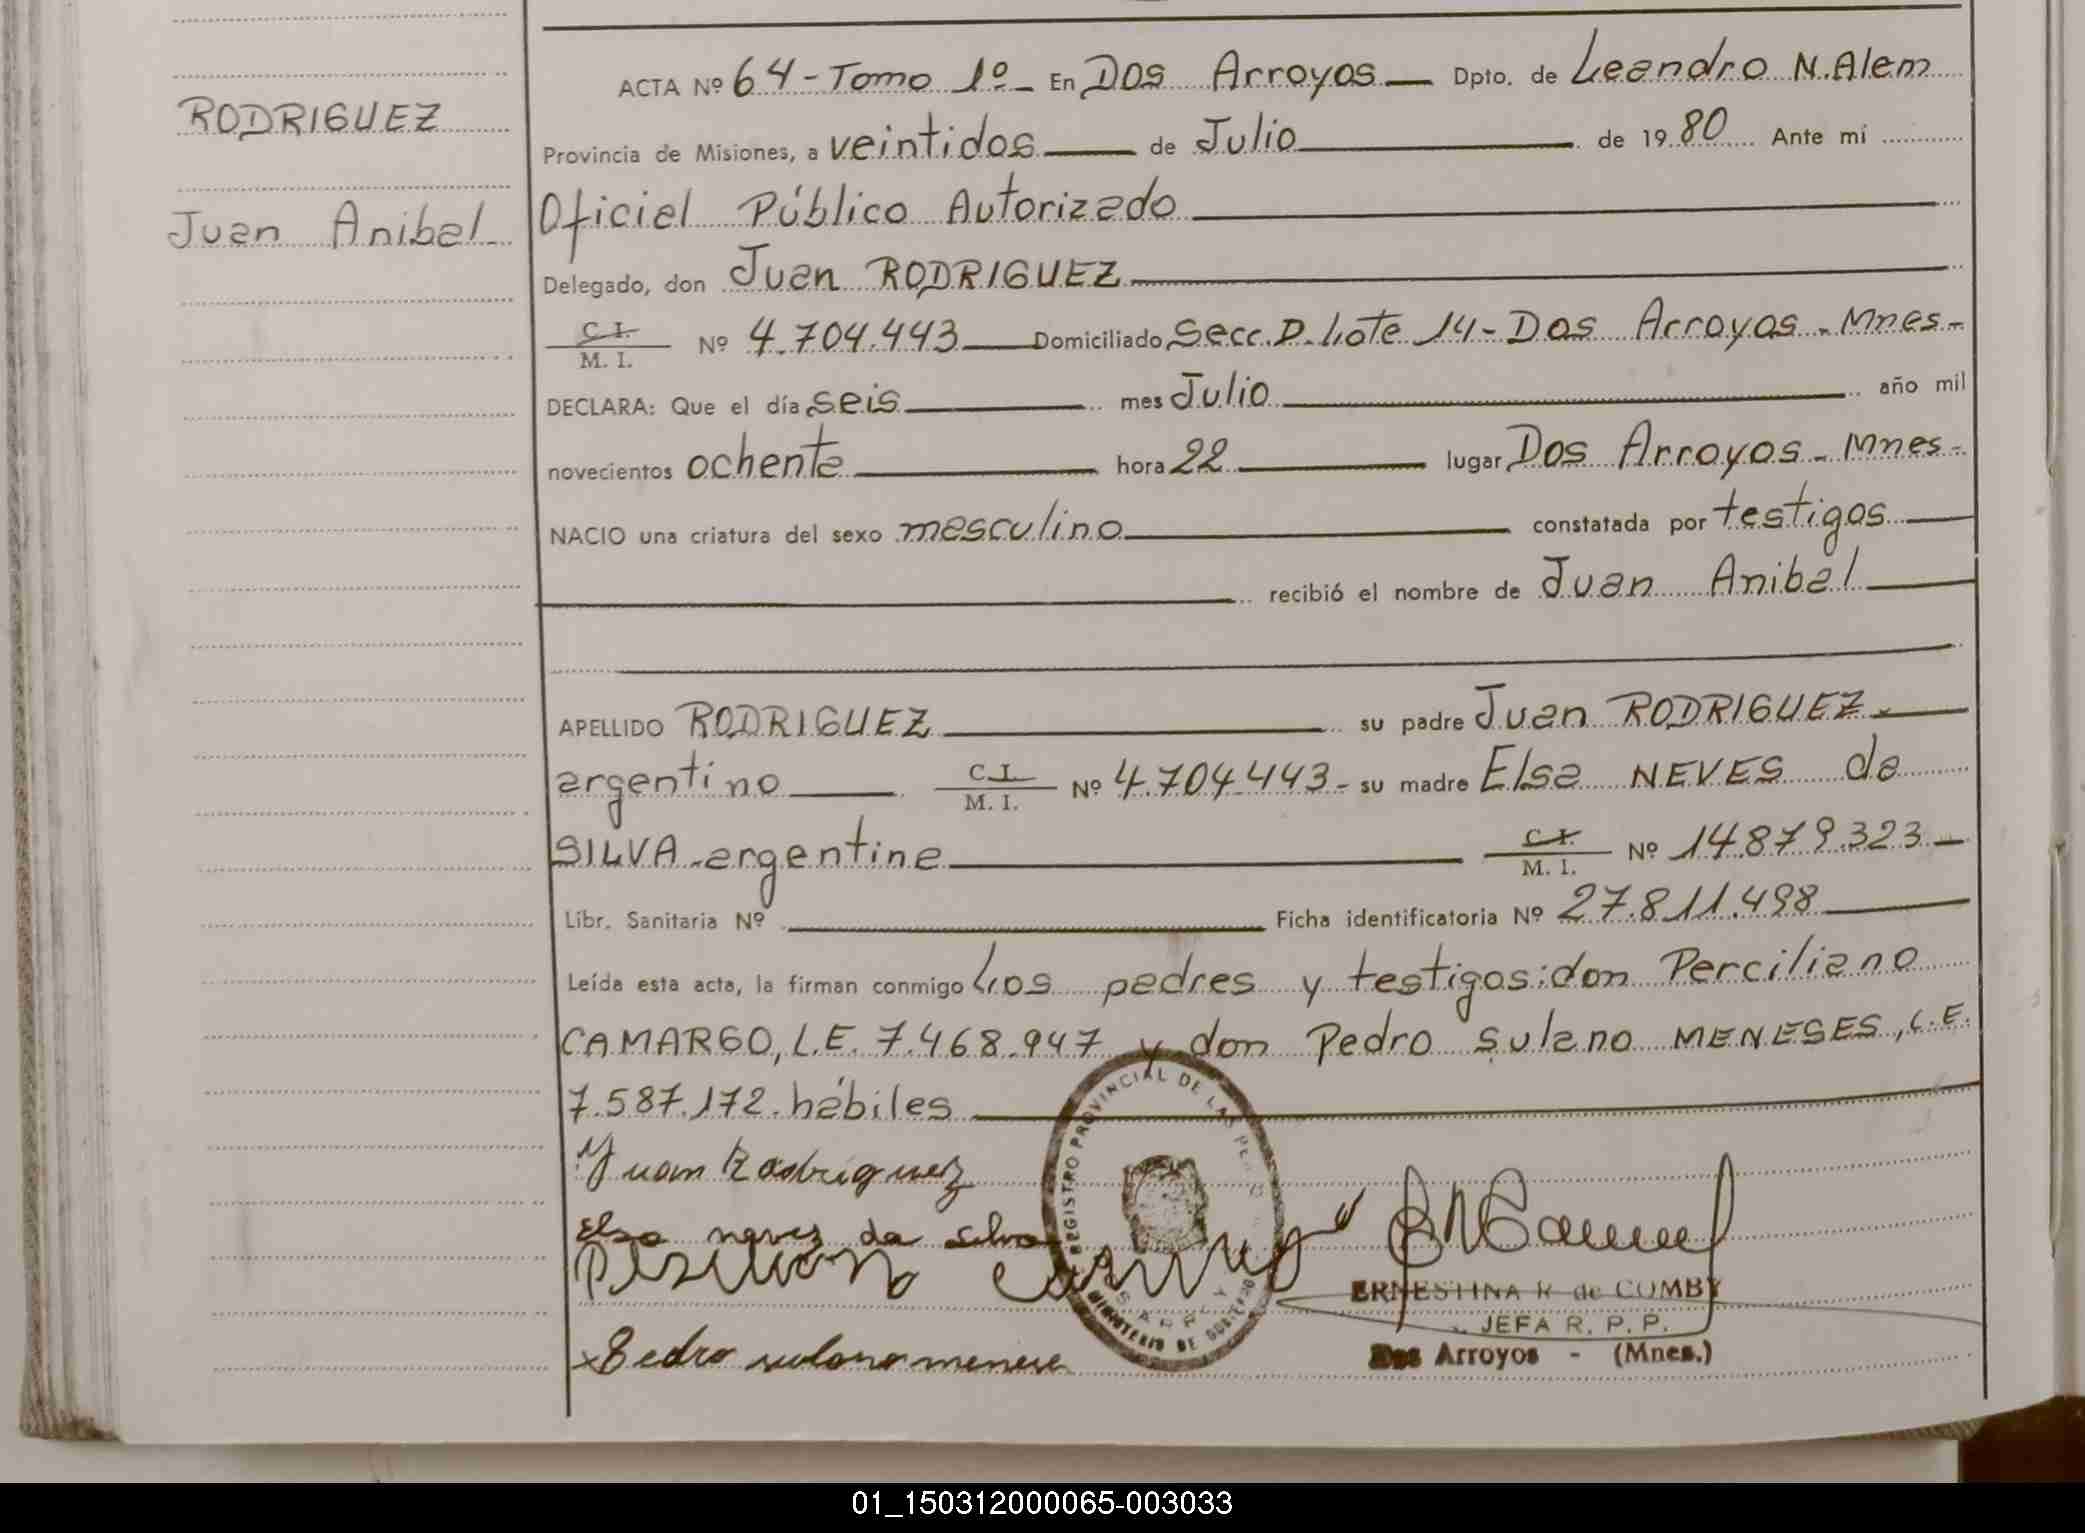 RODRIGUEZ
Juan Anibal
ACTA Nº 64 - Tomo 1º - En Dos Arroyos Dpto. de Leandro N. Alem
Provincia de Misiones, a veintidos de Julio de 1980 Ante mí
Oficial Público Autorizado
Delegado, don Juan RODRIGUEZ
C. I.
M. I. Nº 4.704.443 Domiciliado Secc. D. Lote 14 - Dos Arroyos - Mnes-
DECLARA: Que el día seis mes Julio año mil
novecientos ochenta hora 22 lugar Dos Arroyos - Mnes-
NACIO una criatura del sexo masculino constatada por testigos
recibió el nombre de Juan Anibal
APELLIDO RODRIGUEZ su padre Juan RODRIGUEZ
argentino C. I. M. I. Nº 4.704.443 - su madre Elsa NEVES da
SILVA - argentina C. I. M. I. Nº 14.879.323
Libr. Sanitaria Nº Ficha identificatoria Nº 27.811.498
Leída esta acta, la firman conmigo Los padres y testigos: don Perciliano
CAMARGO, L.E. 7.468.947 y don Pedro Sulano MENESES, L.E.
7.587.172. hábiles
Juan Rodriguez
Elsa neves da silva
Pedro sulano menese
REGISTRO PROVINCIAL DE LAS
MINISTERIO DE GOBIERNO
ERNESTINA R. de COMBY
JEFA R. P. P.
Dos Arroyos - (Mnes.)
01_150312000065-003033